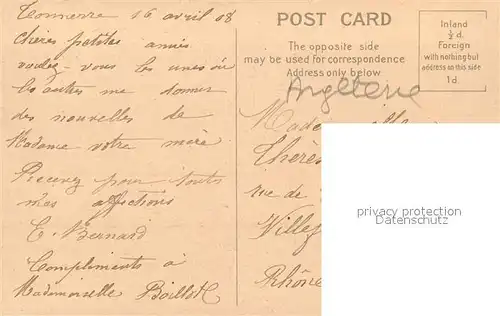 Tonnerre 16 avril 08
chères petites amies
voulez-vous les unes ou
les autres me donner
des nouvelles de
Madame votre mère
Recevez pour toutes
mes affections
C. Bernard
Compliments à
Mademoiselle Boillot
POST CARD
The opposite side
may be used for correspondence
Address only below
Inland
½ d.
Foreign
with nothing but
address on this side
1d.
Angleterre
Thérè
rue de
Villef
Rhône
privacy protection
Datenschutz